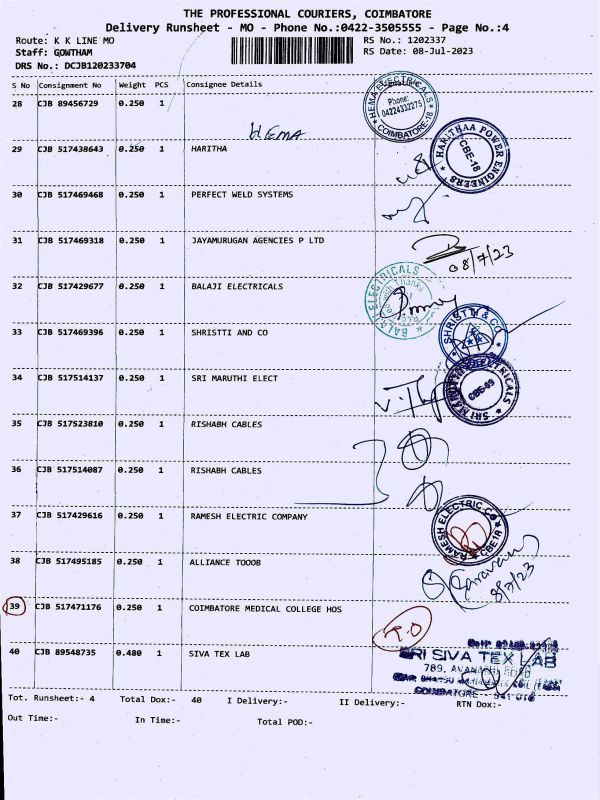 THE PROFESSIONAL COURIERS, COIMBATORE
Delivery Runsheet - MO - Phone No.:0422-3505555 - Page No.:4
Route: K K LINE MO RS No.: 1202337
Staff: GOWTHAM RS Date: 08-Jul-2023
DRS No.: DCJB120233704
S No Consignment No Weight PCS Consignee Details
28 CJB 89456729 0.250 1
HEMA ELECTRICALS
Phone:
04224332275
COIMBATORE-18
HEMA
29 CJB 517438643 0.250 1 HARITHA
HARITHAA POWER ENGINEERS
CBE-18
30 CJB 517469468 0.250 1 PERFECT WELD SYSTEMS
31 CJB 517469318 0.250 1 JAYAMURUGAN AGENCIES P LTD
08/7/23
32 CJB 517429677 0.250 1 BALAJI ELECTRICALS
BALAJI ELECTRICALS
33 CJB 517469396 0.250 1 SHRISTTI AND CO
SHRISTTI & CO
34 CJB 517514137 0.250 1 SRI MARUTHI ELECT
SRI MARUTHI ELECTRICALS
35 CJB 517523810 0.250 1 RISHABH CABLES
36 CJB 517514087 0.250 1 RISHABH CABLES
37 CJB 517429616 0.250 1 RAMESH ELECTRIC COMPANY
RAMESH ELECTRIC CO
CBE 18
38 CJB 517495185 0.250 1 ALLIANCE TOOOB
Saravanan
8/7/23
39 CJB 517471176 0.250 1 COIMBATORE MEDICAL COLLEGE HOS
T.O
40 CJB 89548735 0.480 1 SIVA TEX LAB
SRI SIVA TEX LAB
789, AVANASHI ROAD
COIMBATORE - 641 018
Tot. Runsheet:- 4 Total Dox:- 40 I Delivery:- II Delivery:- RTN Dox:-
Out Time:- In Time:- Total POD:-